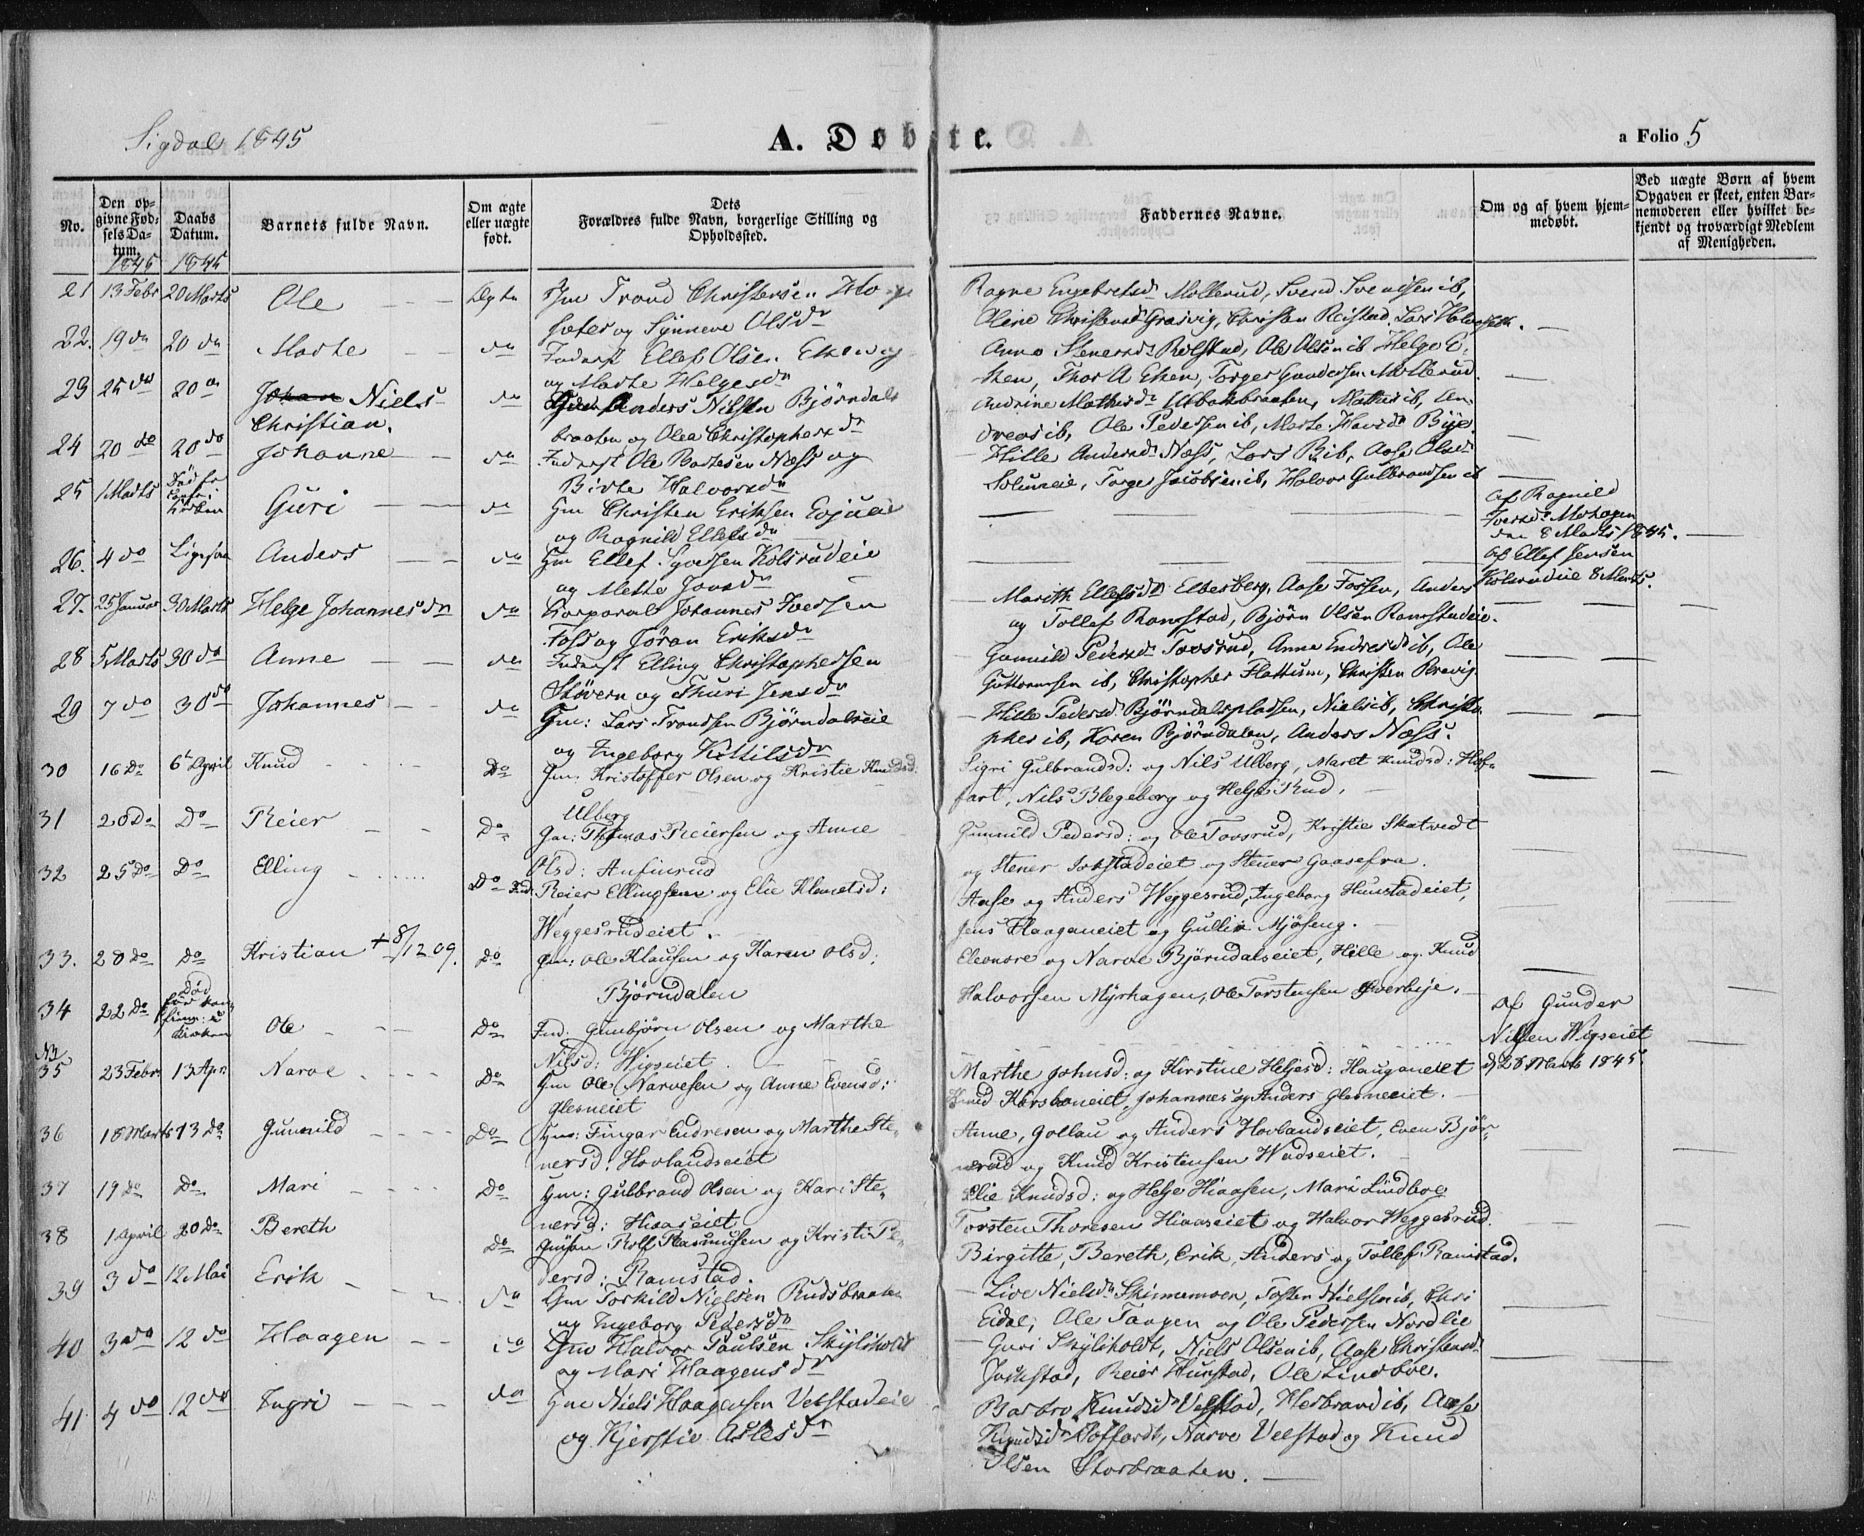 Sigdal 1845
A. Døbte.
a Folio 5
No.
Den opgivne Fødsels Datum.
Daabs Datum.
Barnets fulde Navn.
Om ægte eller uægte født.
Dets Forældres fulde Navn, borgerlige Stilling og Opholdssted.
Faddernes Navne.
Om og af hvem hjemmedøbt.
Ved uægte Børn af hvem Opgaven er skeet, enten Barnemoderen eller hvilket bekjendt og troværdigt Medlem af Menigheden.
1845 1845
21 13 Febr 20 Marts Ole Ægte Gm Trond Christensen
og Synneve Olsdr
Ragne Engebretsdr Mollerud, Svend Svendsen ib,
22. 19 do 20 do Marte do Inderst Ellef Olsen Eken og
og Marte Helgesdr
Anne Stenersdr Rolstad, Ole Olsen ib Helge E-
ken, Thor A Eken, Torger Gundersen Mollerud
23 25 do 20 do Johan Niels do Anders Nilsen Bjørndals
Christian. braaten og Olea Christophersdr
dreas ib, Ole Pedersen ib, Marte
24 20 do 20 do Johanne do Inderst Ole Larsen Næss og
Birte Halvorsdr
Hille Andersdr Næss, Lars ib, Aase Olsdr
Solumeie, Torger Jacobsen ib, Halvor Gulbrandsen ib
25 1 Marts Død før Guri do Gm Christen Eriksen
og Ragnild Ellefsdr
Af Ragnild
Iversdr
den 8 Marts 1845.
26. 4 do Ligesaa Anders do Gm Ellef Kolsrudeie
og Mette
af Ellef Jensen
Kolsrudeie 8 Marts.
27. 25 Januar 30 Marts Helge Johannesdr do Corporal Johannes Iversen
Foss og Jøran Eriksdr
Marith Ellefsdr Elbesberg, Aase Fossen, Anders
og Tollef Ramstad, Bjørn Olsen Ramstadeie.
28 5 Marts 30 do Anne do Inderst Elling Christophersen
Støvern og Thuri Jensdr
Gunild Pedersdr Tovsrud, Anne Endresdr ib, Ole
Guttormsen ib, Christopher Flattum, Christen
29 7 do 30 do Johannes do Gm: Lars Trondsen Bjørndalseie
og Ingeborg Kittilsdr
Hille Pedersdr Bjørndalspladsen, Niels ib, Christo-
pher ib, Karen Bjørndalen, Anders Næss.
30 16 Do 6t April Knud Do Gm: Kristoffer Olsen og Kristie Knudsd.
Ulberg
Sigri Gulbrandsd: og Nils Ulberg, Maret Knudsd: Hof-
fart, Nils Blegeberg og Helge Rud.
31 20 Do Do Reier Do Gm: Thomas Reiersen og Anne
Olsd: Anfinrud
Gunnild Pedersd: og Ole Tovsrud, Kristie Skatvedt
og Stener og Stener Gaasefra.
32 25 Do Do Elling Do Ind: Reier Ellingsen og Elie Klemetsd:
Weggesrudeiet.
Aase og Anders Weggesrud, Ingeborg Hunstadeiet,
Jens Haaganeiet og Gullik Mjøseng.
33. 28 Do Do Kristian + 8/12 09. Do Gm: Ole Klausen og Karen Olsd:
Bjørndalen
Eleonore og Narve Bjørndalseiet, Hille og Knud
Halvorsen Myrhagen, Ole Torstensen Overbye.
34 22 Do Død Ole Do Ind: Gunbjørn Olsen og Marthe
Nilsd: Wigseiet
Af Gunder
Nilsen Wigseiet
d 28 Marts 1845
35 23 Febr: 13 Apr: Narve Do Gm Ole Narvesen og Anne Evensd:
Glesneeiet
Marthe Johnsd: og Kirstine Helgesd: Hauganeiet
Knud, Johannes og Anders Glesneeiet.
36 18 Marts 13 Do Gunnild Do Gm: Fingar Endresen og Marthe Ste-
nersd: Hovlandseiet
Anne, Gollau og Anders Hovlandseiet, Even Bjør-
nerud og Knud Kristensen Wadseiet.
37 19 Do Do Mari Do Gm: Gulbrand Olsen og Kari Ste-
nersd: Hiaaseiet
Elie Knudsd: og Helge Hiaasen, Mari Lindboe
Torsten Thoresen Hiaaseiet og Halvor Weggesrud.
38 1 April 20 Do Bereth Do Rolf Rasmusen og Kristi Pe-
dersd: Ramstad.
Birgitte, Bereth, Erik, Anders og Tollef Ramstad.
39 3 do 12 Mai Erik do Gm Torkild Nielsen Rudsbraaten
og Ingeborg Pedersdr
Live Nielsdr Skinnemoen, Torsten Nielsen ib,
Eidal, Ole Taagen og Ole Pedersen Nordlie
40 3 do 12 do Haagen do Gm Halvor Paulsen
og Mari Haagensdr
Guri Niels Olsen ib, Aase Christensdr
Jokstad, Reier Hunstad, Ole Lindboe.
41 4 do 12 do Ingri do Gm Niels Haagensen Velstadeie
og Kjerstie Aslesdr
Barbro Knudsdr Velstad, Herbrand ib, Aase
Knudsdr Hoffardt, Narve Velstad og Knud
Olsen Storbraaten.